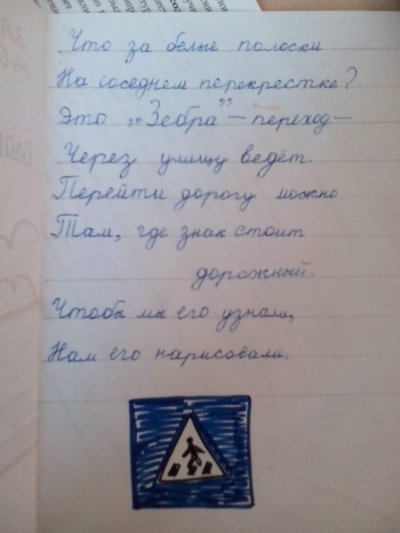 Что за белые полоски
На соседнем перекрестке?
Это „Зебра” – переход –
Через улицу ведёт.
Перейти дорогу можно
Там, где знак стоит
дорожный.
Чтоба мы его узнали,
Нам его нарисовали.